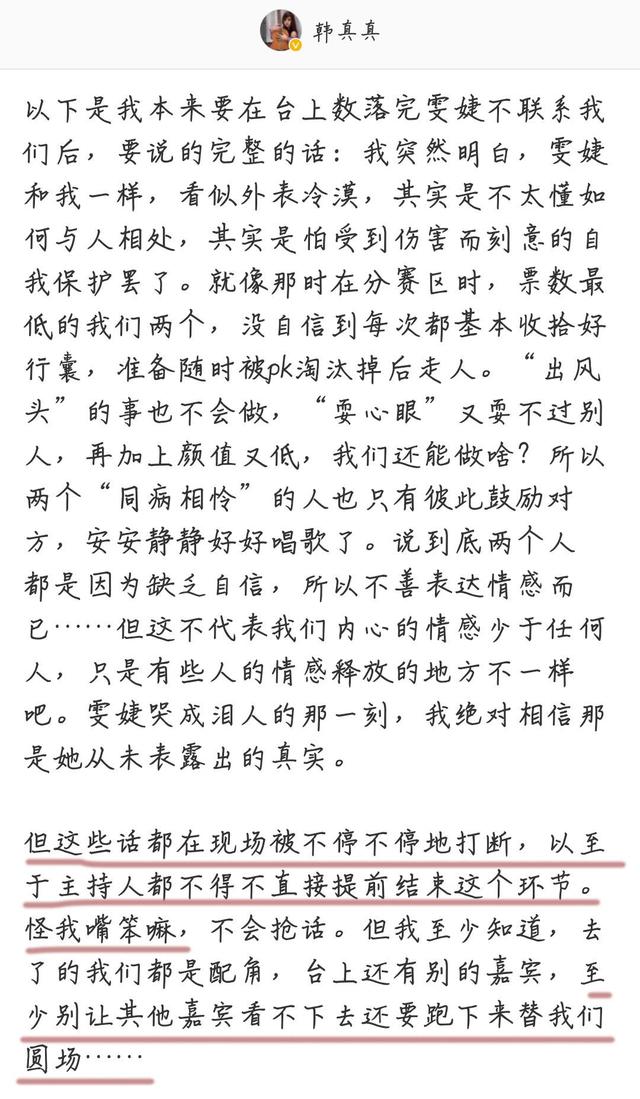 韩真真
以下是我本来要在台上数落完雯婕不联系我
们后，要说的完整的话：我突然明白，雯婕
和我一样，看似外表冷漠，其实是不太懂如
何与人相处，其实是怕受到伤害而刻意的自
我保护罢了。就像那时在分赛区时，票数最
低的我们两个，没自信到每次都基本收拾好
行囊，准备随时被pk淘汰掉后走人。“出风
头”的事也不会做，“耍心眼”又耍不过别
人，再加上颜值又低，我们还能做啥？所以
两个“同病相怜”的人也只有彼此鼓励对
方，安安静静好好唱歌了。说到底两个人
都是因为缺乏自信，所以不善表达情感而
已……但这不代表我们内心的情感少于任何
人，只是有些人的情感释放的地方不一样
吧。雯婕哭成泪人的那一刻，我绝对相信那
是她从未表露出的真实。
但这些话都在现场被不停不停地打断，以至
于主持人都不得不直接提前结束这个环节。
怪我嘴笨嘛，不会抢话。但我至少知道，去
了的我们都是配角，台上还有别的嘉宾，至
少别让其他嘉宾看不下去还要跑下来替我们
圆场……